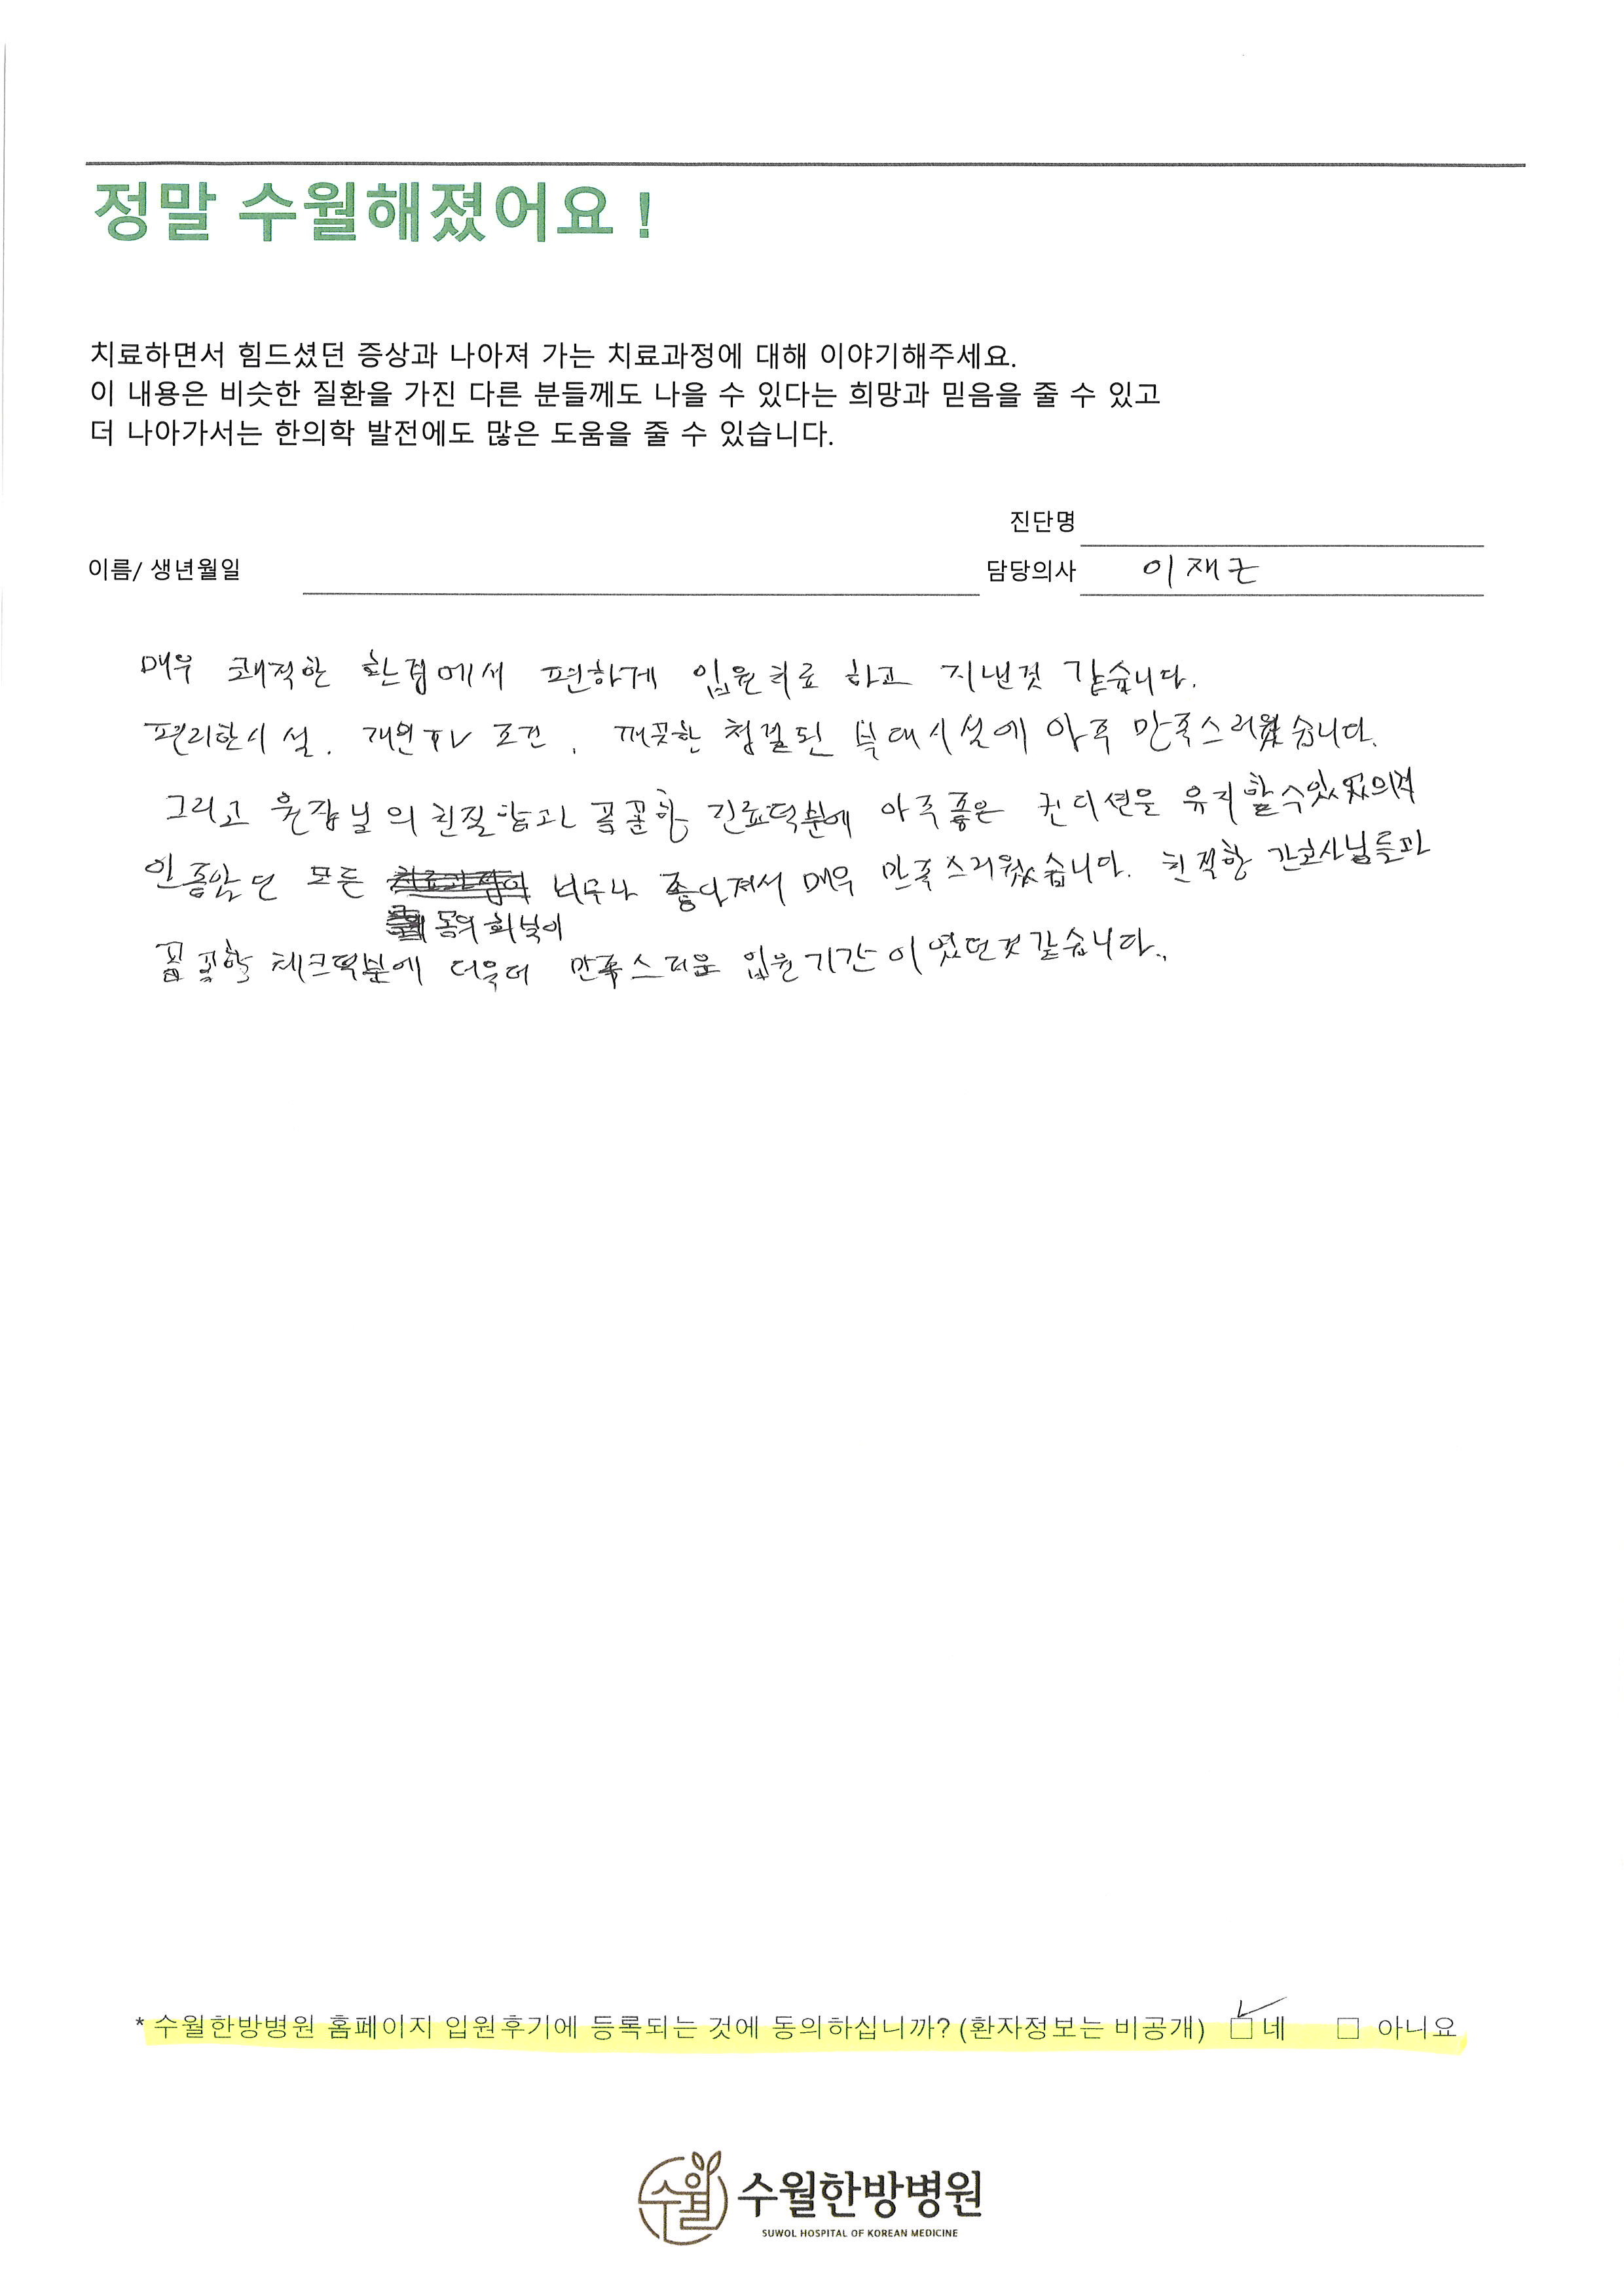 정말 수월해졌어요 !
치료하면서 힘드셨던 증상과 나아져 가는 치료과정에 대해 이야기해주세요.
이 내용은 비슷한 질환을 가진 다른 분들께도 나을 수 있다는 희망과 믿음을 줄 수 있고
더 나아가서는 한의학 발전에도 많은 도움을 줄 수 있습니다.
진단명
이름/ 생년월일 담당의사 이재근
매우 쾌적한 환경에서 편하게 입원치료 하고 지낸것 같습니다.
편리한시설, 개인TV 조건, 깨끗한 청결된 부대시설에 아주 만족스러웠습니다.
그리고 원장님의 친절함과 꼼꼼한 진료덕분에 아주좋은 컨디션을 유지할수있
안좋았던 모든 너무나 좋아져서 매우 만족스러웠습니다. 친절한 간호사님들과
몸의 회복이
꼼꼼한 체크덕분에 더욱더 만족스러운 입원기간이였던것같습니다.
* 수월한방병원 홈페이지 입원후기에 등록되는 것에 동의하십니까? (환자정보는 비공개) □ 네 □ 아니요
수월 수월한방병원
SUWOL HOSPITAL OF KOREAN MEDICINE